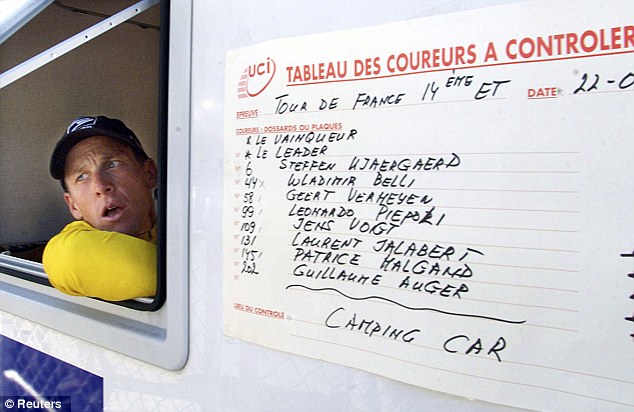 uci
TABLEAU DES COUREURS A CONTROLER
EPREUVE: TOUR DE FRANCE 14 ÈME ET DATE: 22-0
COUREURS: DOSSARDS OU PLAQUES
* LE VAINQUEUR
* LE LEADER
6 STEFFEN KJAERGAERD
44 WLADIMIR BELLI
58 GEERT VERHEYEN
99 LEONARDO PIEPOLI
109 JENS VOIGT
131 LAURENT JALABERT
145 PATRICE HALGAND
202 GUILLAUME AUGER
LIEU DU CONTROLE CAMPING CAR
© Reuters